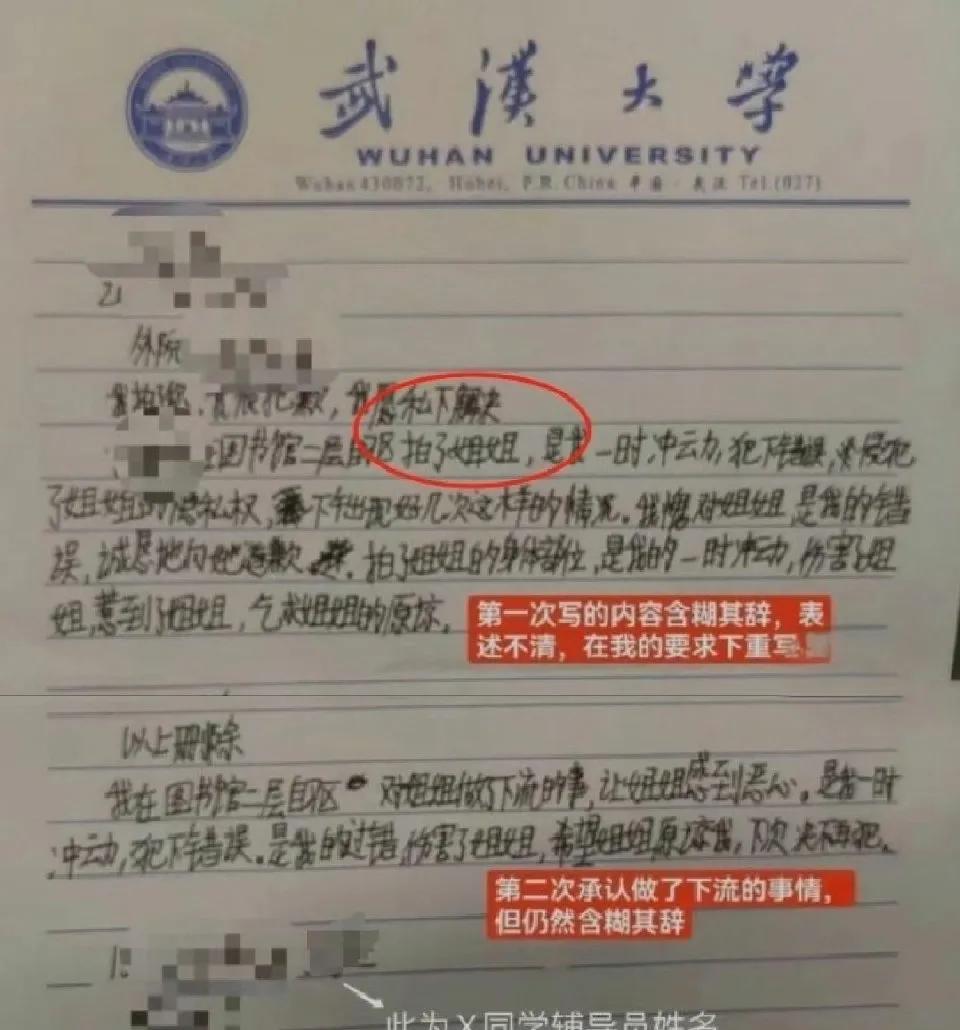 武漢大學
WUHAN UNIVERSITY
Wuhan 430072, Hubei, P.R.China 中国·武汉 Tel.(027)
外院
我愿私下解决
图书馆二层自习区拍了姐姐,是我一时冲动,犯下错误,侵犯
了姐姐的隐私权,下出现好几次这样的情况。我愧对姐姐,是我的错
误,诚恳地向她道歉。拍了姐姐的身体部位,是我的一时冲动,伤害了姐
姐,惹到了姐姐,乞求姐姐的原谅。
第一次写的内容含糊其辞,表
述不清,在我的要求下重写
以上删除
我在图书馆二层自习区对姐姐做了下流的事,让姐姐感到恶心。是我一时
冲动,犯下错误。是我的过错,伤害了姐姐,希望姐姐原谅我,下次决不再犯。
第二次承认做了下流的事情,
但仍然含糊其辞
此为X同学辅导员姓名